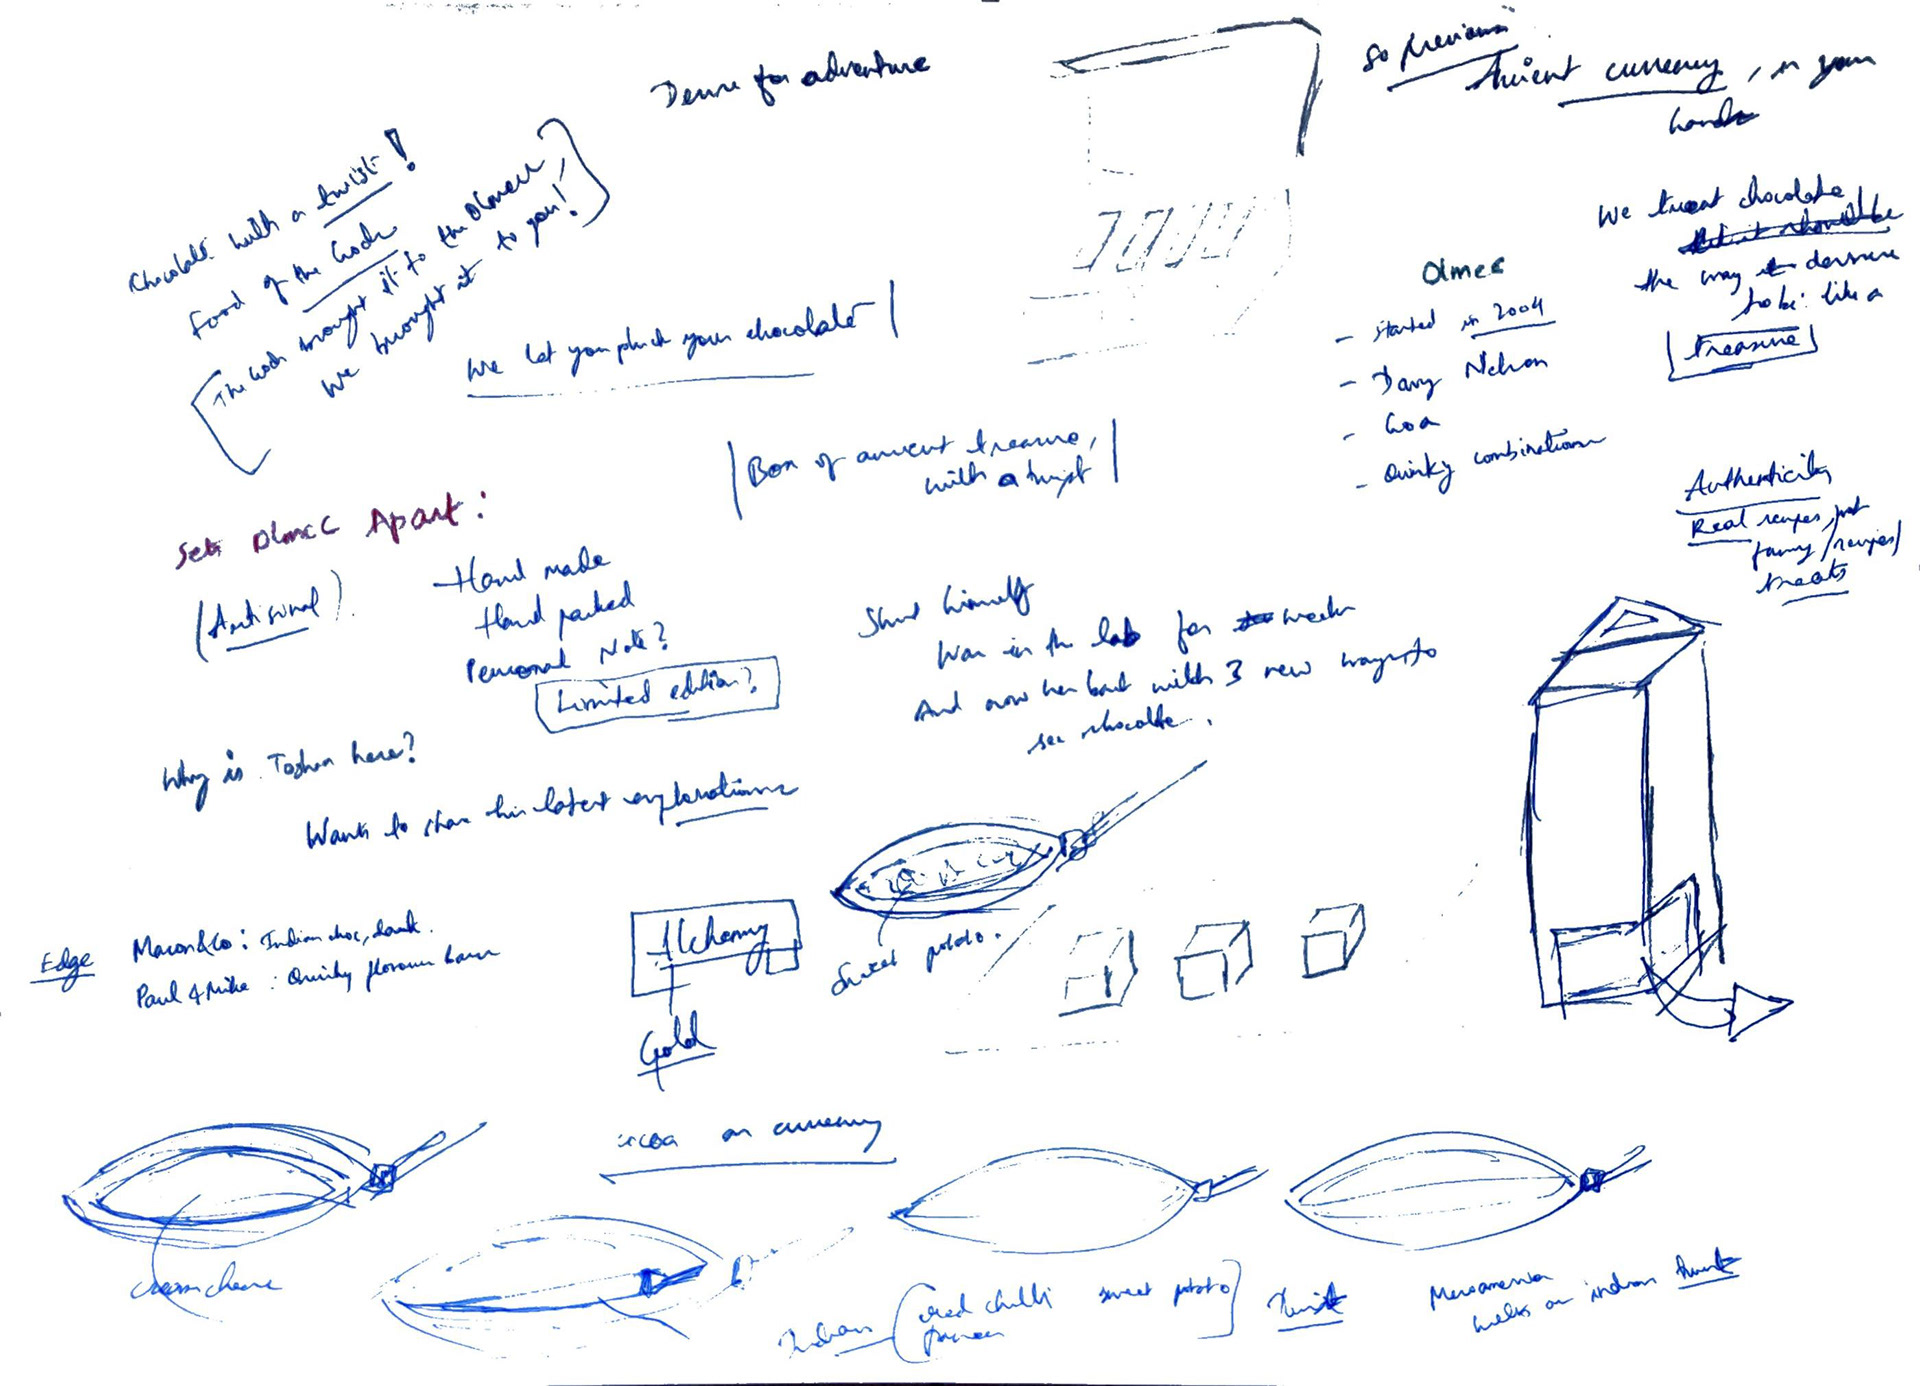 Desire for adventure
So previous"
Ancient currency, in your
hands
Chocolate with a twist!
Food of the Gods
The Gods brought it to the Olmecs,
We brought it to you!
We let you pluck your chocolate
Box of ancient treasure,
with a twist
Olmec
- started in 2004
- Davy Nelson
- Goa
- Quirky combinations
We treat chocolate
that it should be
the way it deserve
to be: like a
treasure
Authenticity
Real recipes, not
fancy/recipes/
treats
Sets Olmec Apart:
(Artisonal)
Hand made
Hand packed
Personal Note?
Limited edition?
Shut himself
Was in the lab for weeks
And now hes back with 3 new ways to
see chocolate.
Why is Toshan here?
Wants to share his latest explorations
Edge
Mason&Co: Indian choc, dark.
Paul & Mike: Quirky flavour bars
Alchemy
Gold
Sweet potato.
cocoa as currency
cream cheese
Indian
red chilli sweet potato
Twist
Mesoamerica
meets an indian twist